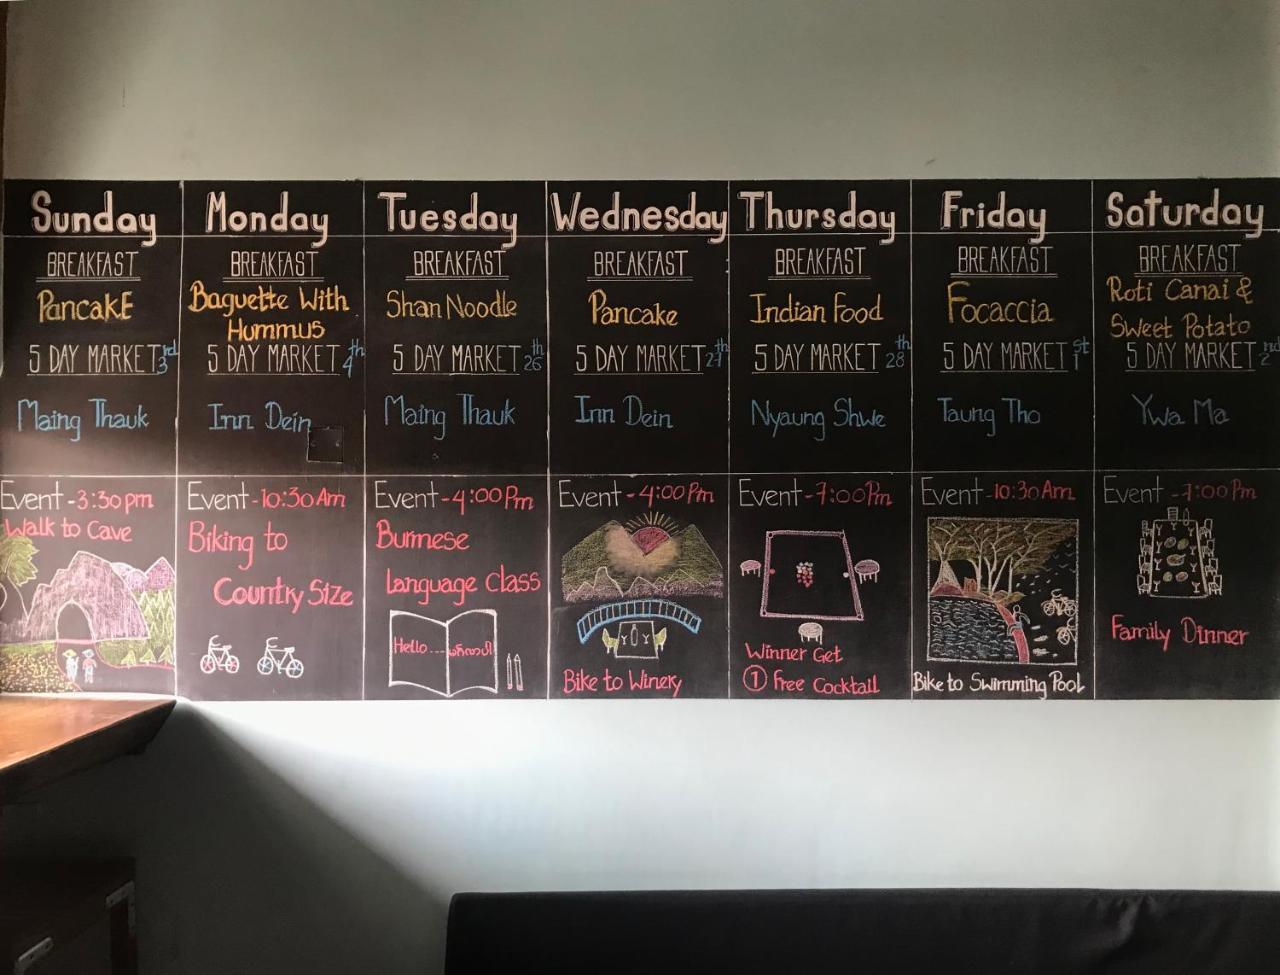 Sunday
BREAKFAST
PancakE
5 DAY MARKET 3rd
Maing Thauk
Event - 3:30pm
Walk to Cave
Monday
BREAKFAST
Baguette With
Hummus
5 DAY MARKET 4th
Inn Dein
Event - 10:30 Am
Biking to
Country Size
Tuesday
BREAKFAST
Shan Noodle
5 DAY MARKET 26th
Maing Thauk
Event - 4:00 Pm
Burmese
Language class
Hello....
Wednesday
BREAKFAST
Pancake
5 DAY MARKET 27th
Inn Dein
Event - 4:00 Pm
Bike to Winery
Thursday
BREAKFAST
Indian Food
5 DAY MARKET 28th
Nyaung Shwe
Event - 7:00 Pm
Winner Get
1 Free Cocktail
Friday
BREAKFAST
Focaccia
5 DAY MARKET 1st
Taung Tho
Event - 10:30 Am
Bike to Swimming Pool
Saturday
BREAKFAST
Roti Canai &
Sweet Potato
5 DAY MARKET 2nd
Ywa Ma
Event - 7:00 Pm
Family Dinner